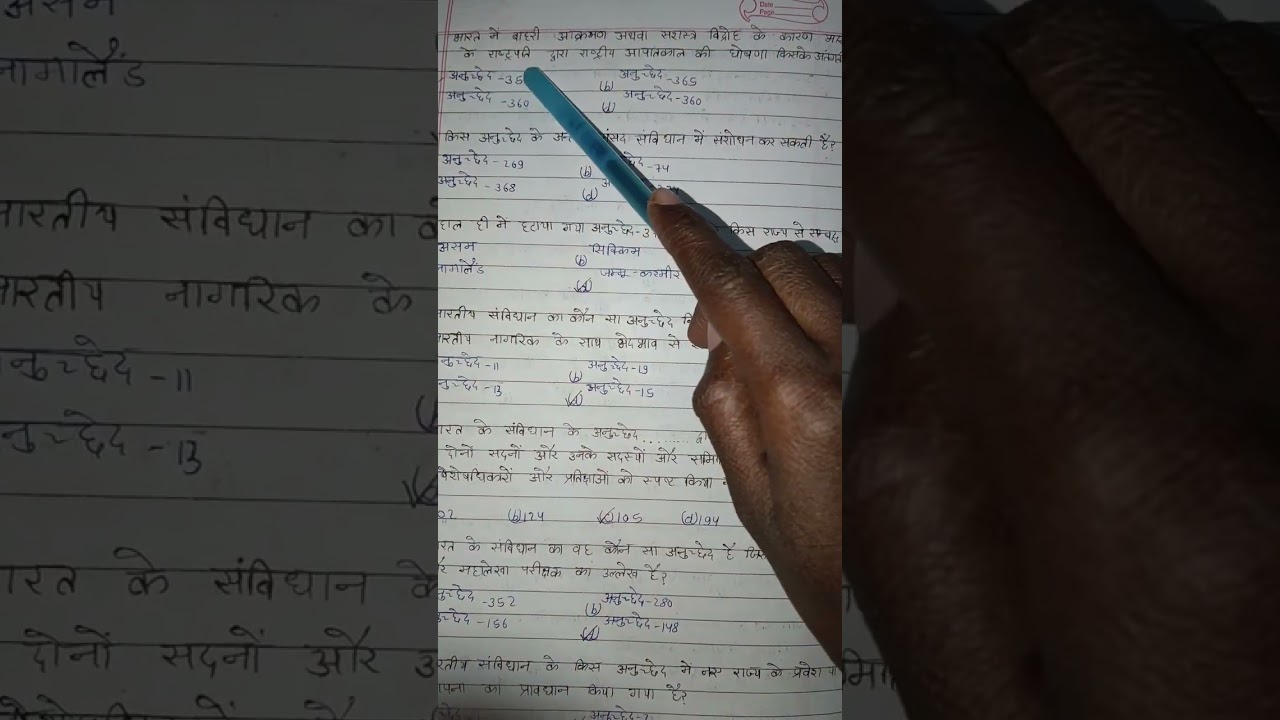 Date
Page
भारत में बाहरी आक्रमण अथवा सशस्त्र विद्रोह के कारण
के राष्ट्रपति द्वारा राष्ट्रीय आपातकाल की घोषणा किसके अंतर्गत
अनुच्छेद -35 (b) अनुच्छेद -365
अनुच्छेद -360 (d) अनुच्छेद -360
किस अनुच्छेद के संसद संविधान में संशोधन कर सकती है?
अनुच्छेद - 269 (b) -74
अनुच्छेद - 368 (d)
हाल ही में हटाया गया अनुच्छेद-3 किस राज्य से सम्बद्ध
असम (b) सिक्किम
नागालैंड (d) जम्मू-कश्मीर
भारतीय संविधान का कौन सा अनुच्छेद
भारतीय नागरिक के साथ भेदभाव से
अनुच्छेद -11 (b) अनुच्छेद -19
अनुच्छेद -13 (d) अनुच्छेद -15
भारत के संविधान के अनुच्छेद ........
दोनों सदनों और उनके सदस्यों और
विशेषधिकारों और प्रतिक्षाओं को स्पष्ट किया
02 (b) 124 (c) 105 (d) 194
भारत के संविधान का वह कौन सा अनुच्छेद है
महालेखा परीक्षक का उल्लेख है?
अनुच्छेद -352 (b) अनुच्छेद -280
अनुच्छेद -156 (d) अनुच्छेद -148
भारतीय संविधान के किस अनुच्छेद में नए राज्य के प्रवेश या
का प्रावधान किया गया है?
अनुच्छेद -2